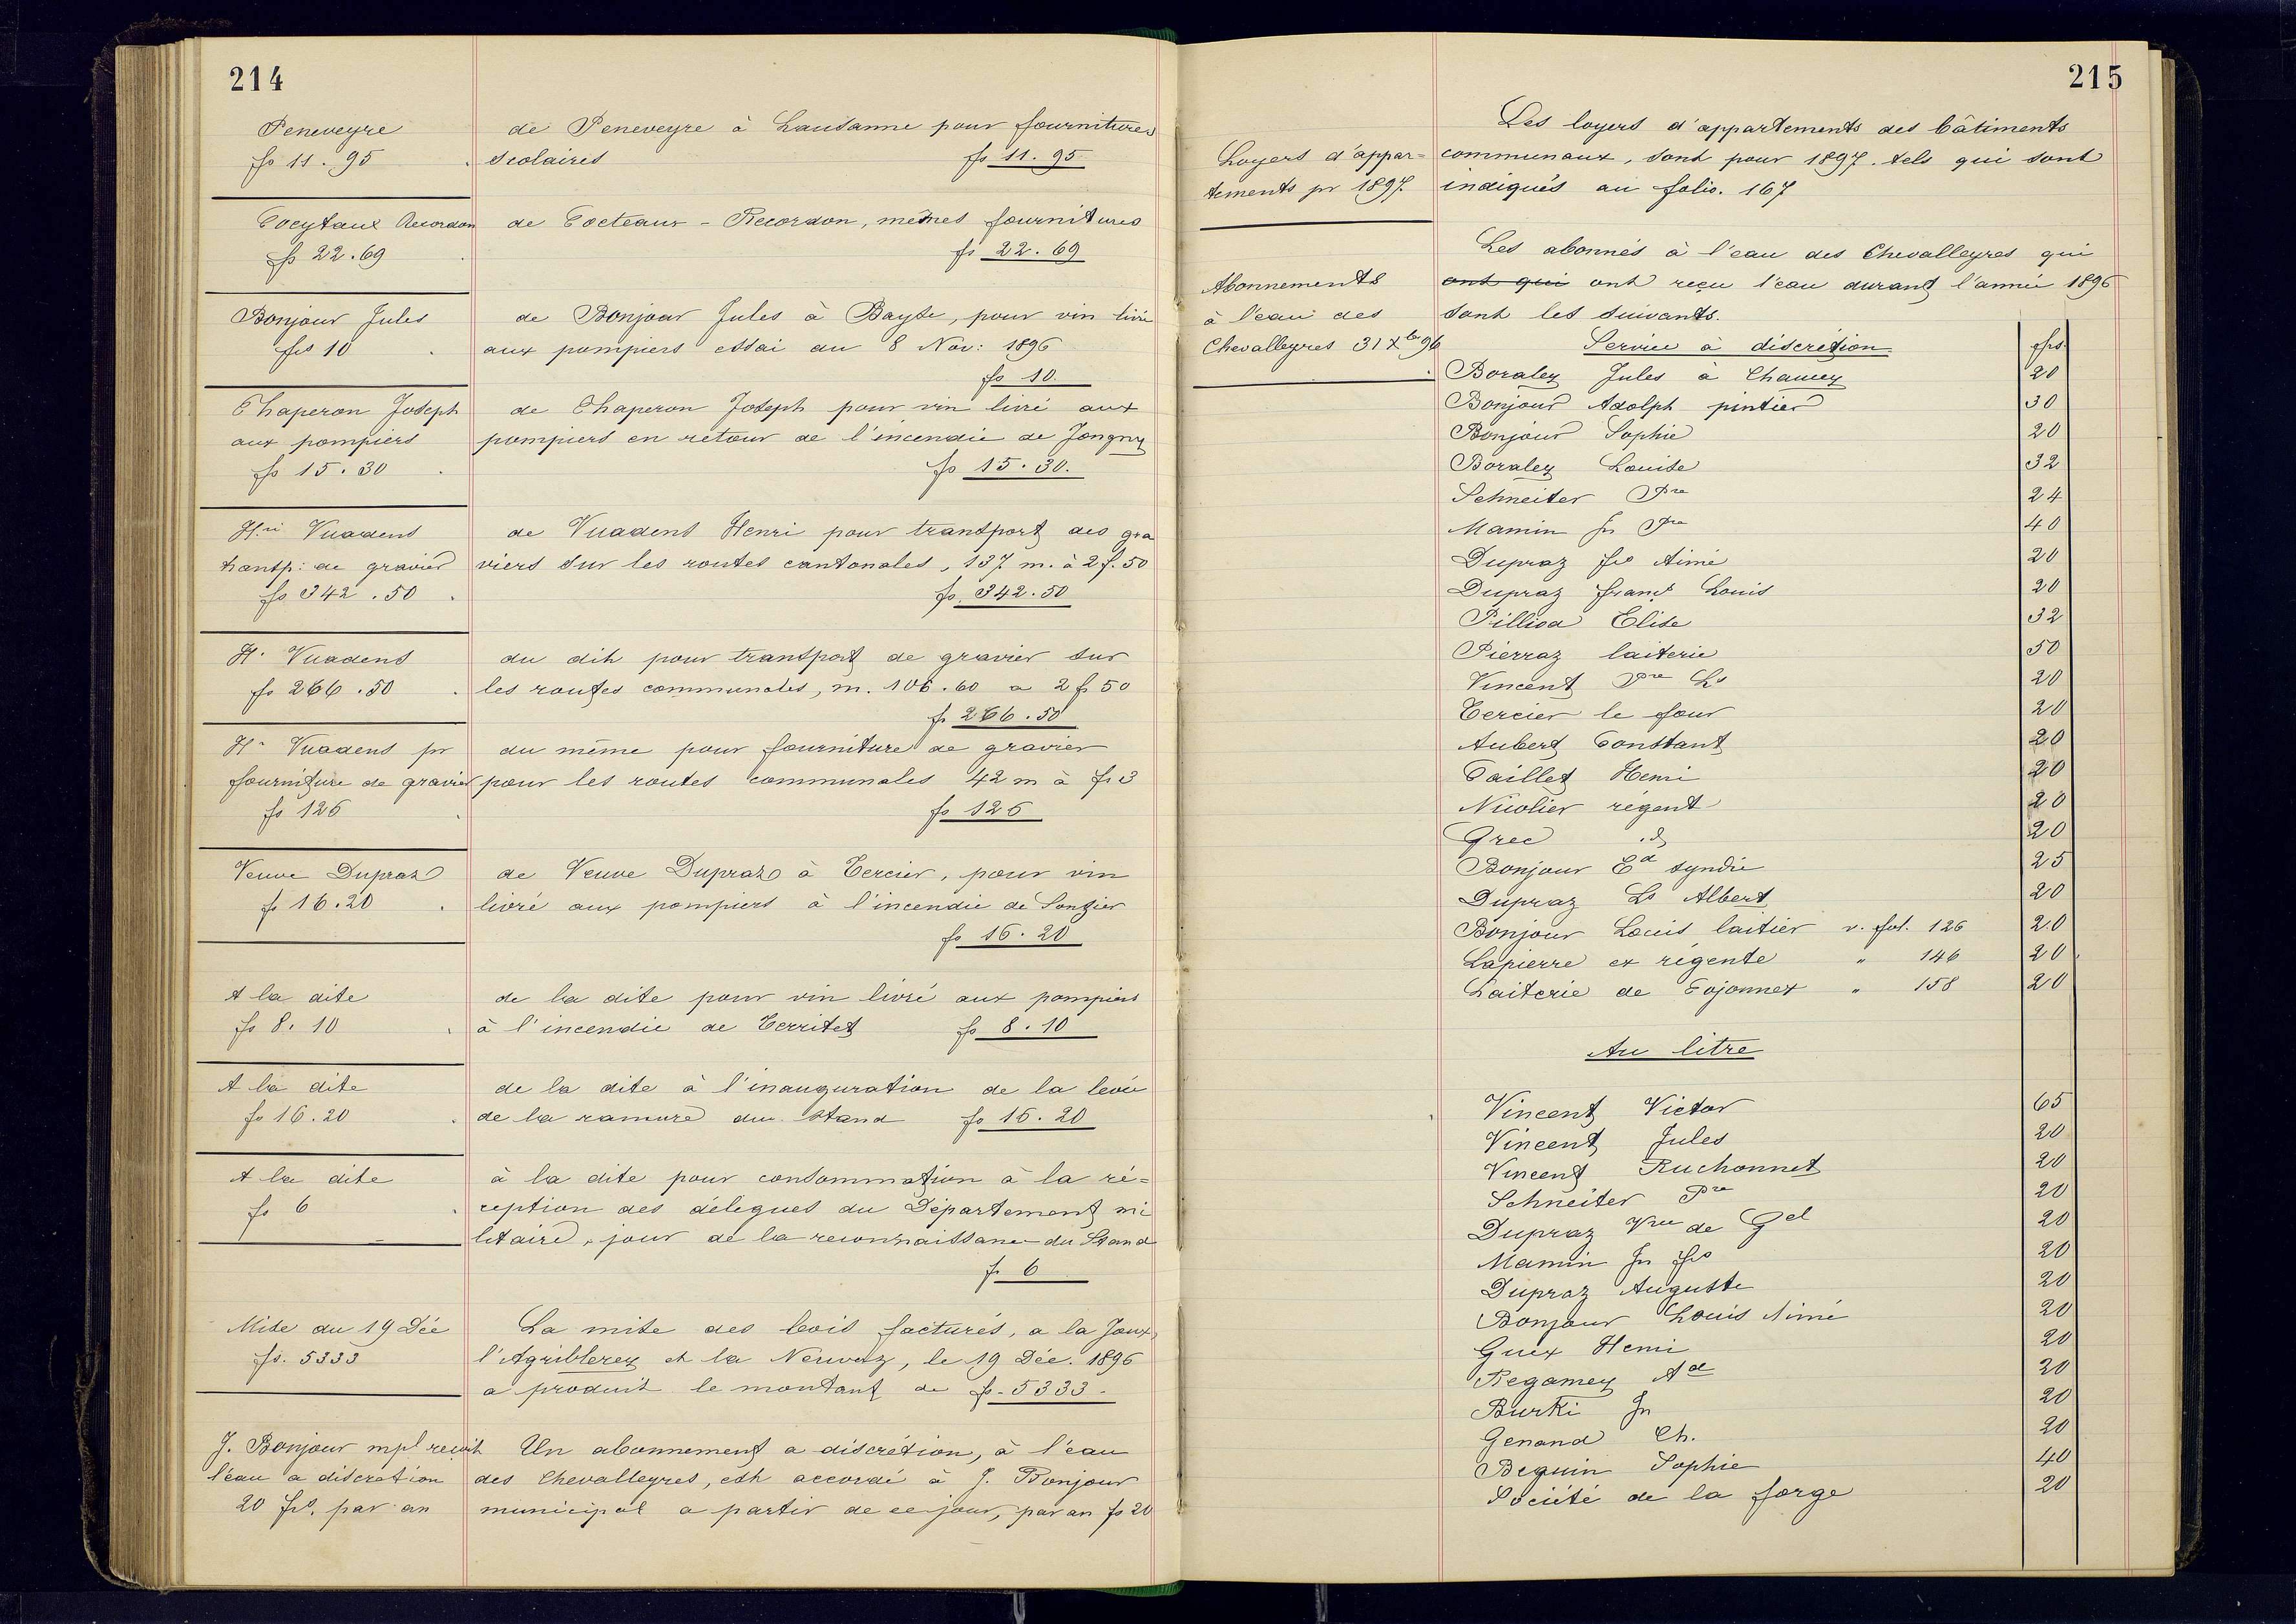 214
Peneveyre
fs 11.95
de Peneveyre à Lausanne pour fournitures
scolaires fs 11.95
Cocytaux Recordon
fs 22.69
de Cocteaux - Recordon, mêmes fournitures
fs 22.69
Bonjour Jules
frs 10
de Bonjour Jules à Bayse, pour vin livré
aux pompiers essai du 8 Nov: 1896
fs 10.
Chaperon Joseph
aux pompiers
fs 15.30
de Chaperon Joseph pour vin livré aux
pompiers en retour de l'incendie de Jongny
fs 15.30.
Hri Vuadens
transp: de gravier
fs 342.50
de Vuadens Henri pour transport des gra
viers sur les routes cantonales, 137 m. à 2 f. 50
fs. 342.50
H. Vuadens
fs 266.50
du dit pour transport de gravier sur
les routes communales, m. 106.60 a 2 fs 50
fs 266.50
H. Vuadens pr
fourniture de gravier
fs 126
du même pour fourniture de gravier
pour les routes communales 42 m à fs 3
fs 126
Veuve Dupraz
fs 16.20
de Veuve Dupraz à Tercier, pour vin
livré aux pompiers à l'incendie de Sonzier
fs 16.20
A la dite
fs 8.10
de la dite pour vin livré aux pompiers
à l'incendie de Territet fs 8.10
A la dite
fs 16.20
de la dite à l'inauguration de la levée
de la ramure du Stand fs 16.20
A la dite
fs 6
à la dite pour consommation à la ré=
ception des délegués du Département mi
litaire, jour de la reconnaissance du Stand
fs 6
Mise du 19 Déc
fs. 5333
La mise des bois facturés, a la Joux,
l'Agriblerey et la Neuvaz, le 19 Déc. 1896
a produit le montant de fs. 5333.
J. Bonjour mpl reçoit
l'eau a discretion
20 frs. par an
Un abonnement a discrétion, à l'eau
des Chevalleyres, est accordé à J. Bonjour
municipal a partir de ce jour, par an fs 20
215
Loyers d'appar=
tements pr 1897.
Les loyers d'appartements des bâtiments
communaux, sont pour 1897. tels qui sont
indiqués au folio. 167
Abonnements
à l'eau des
Chevalleyres 31 Xbre 96
Les abonnés à l'eau des Chevalleyres qui
ont qui ont reçu l'eau durant l'année 1896
sont les suivants.
Service à discrétion frs.
Boraley Jules à Chaucey 20
Bonjour Adolph pintier 30
Bonjour Sophie 20
Boraley Louise 32
Schneiter Pre 24
Mamin fs Pre 40
Dupraz fs Aimé 20
Dupraz Franç Louis 20
Pilliod Elise 32
Pierraz laiterie 50
Vincent Pre Ls 20
Tercier le four 20
Aubert Constant 20
Taillet Henri 20
Nicolier régent 20
Grec id 20
Bonjour Ed syndic 25
Dupraz Ls Albert 20
Bonjour Louis laitier v. fol. 126 20
Lapierre ex régente " 146 20
Laiterie de Cojonnex " 158 20
Au litre
Vincent Victor 65
Vincent Jules 20
Vincent Ruchonnet 20
Schneiter Pre 20
Dupraz Vve de Gel 20
Mamin fs fs 20
Dupraz Auguste 20
Bonjour Louis Aimé 20
Guex Henri 20
Regamey Ad 20
Burki Jn 20
Genand Ch. 20
Beguin Sophie 40
Société de la forge 20